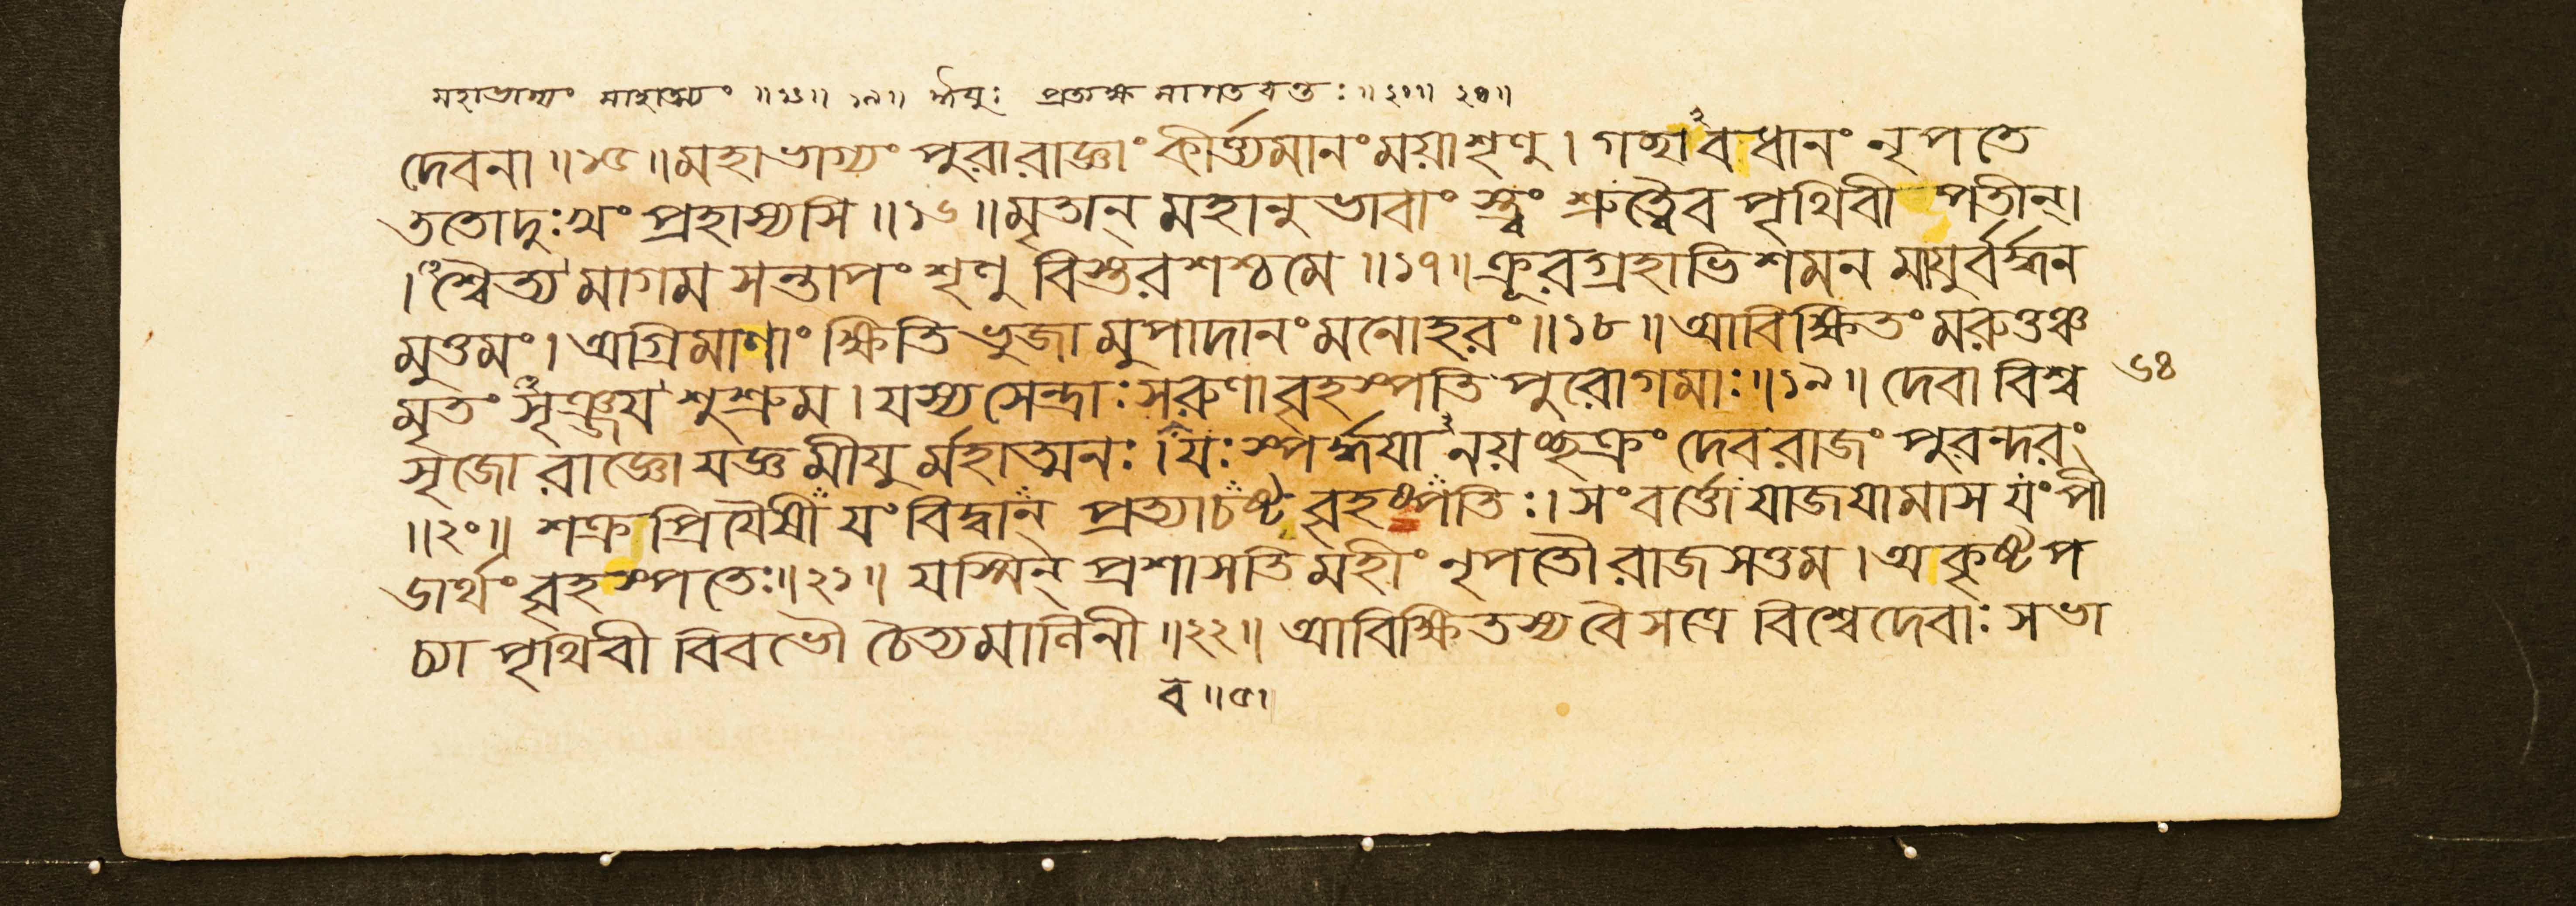 মহাভাগ্যং মাহাত্ম্যং ॥১৬॥ ১৯॥ র্ম্মযুঃ প্রত্যক্ষ মাগতবন্তঃ॥২০॥ ২০॥
দেবনা॥১৫॥মহাভাগ্যং পুরারাজ্ঞাং কীর্ত্ত্যমানংময়াশৃণু। গচ্ছাবধানং নৃপতে
ততোদুঃখং প্রহাস্যসি॥১৬॥মৃতান্ মহানুভাবাং স্ত্বং শ্রুত্বৈব পৃথিবী পতীন্।
।শ্বৈত্য মাগম সন্তাপং শৃণু বিস্তরশশ্চমে॥১৭॥ক্রূরগ্রহাভিশমন মায়ুর্বর্দ্ধন
মুত্তমং। অগ্রিমাণাং ক্ষিতি ভুজা মুপাদানংমনোহরং॥১৮॥আবিক্ষিতংমরুত্তঞ্চ
মৃতং সৃঞ্জয় শুশ্রুম। যস্যসেন্দ্রাঃসরুণাবৃহস্পতি পুরোগমাঃ॥১৯॥ দেবা বিশ্ব ৬৪
সৃজো রাজ্ঞো যজ্ঞমীযু র্মহাত্মনঃ। যঃ স্পর্দ্ধয়া নয়ঞ্ছক্রং দেবরাজং পুরন্দরং
॥২০॥ শক্রপ্রিয়ৈষী যং বিদ্বান্ প্রত্যাচষ্ট বৃহস্পতিঃ। সংবর্ত্তো যাজয়ামাস যং পী
ড়ার্থং বৃহস্পতেঃ॥২১॥ যস্মিন্ প্রশাসতি মহীং নৃপতৌ রাজসত্তম। অকৃষ্টপ
চ্যা পৃথিবী বিবভৌ চৈত্যমানিনী॥২২॥ আবিক্ষিতস্য বৈ সত্রে বিশ্বেদেবাঃ সভা
ব॥৫॥